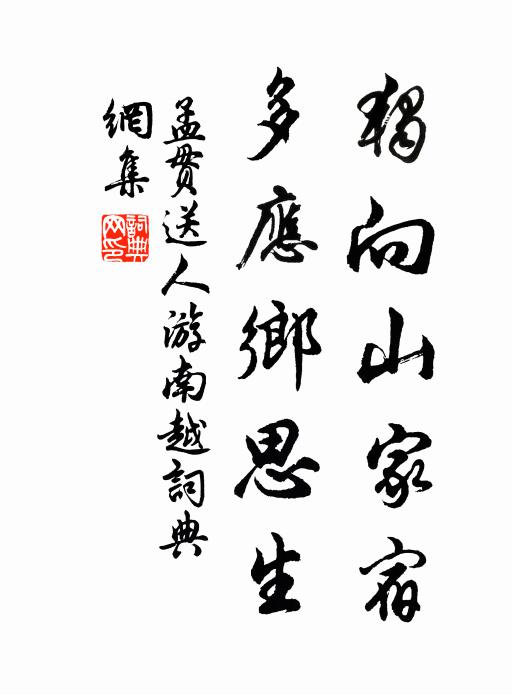 獨向山家宿
多應鄉思生
孟貫送人游南越詞典
網集
詞典網印